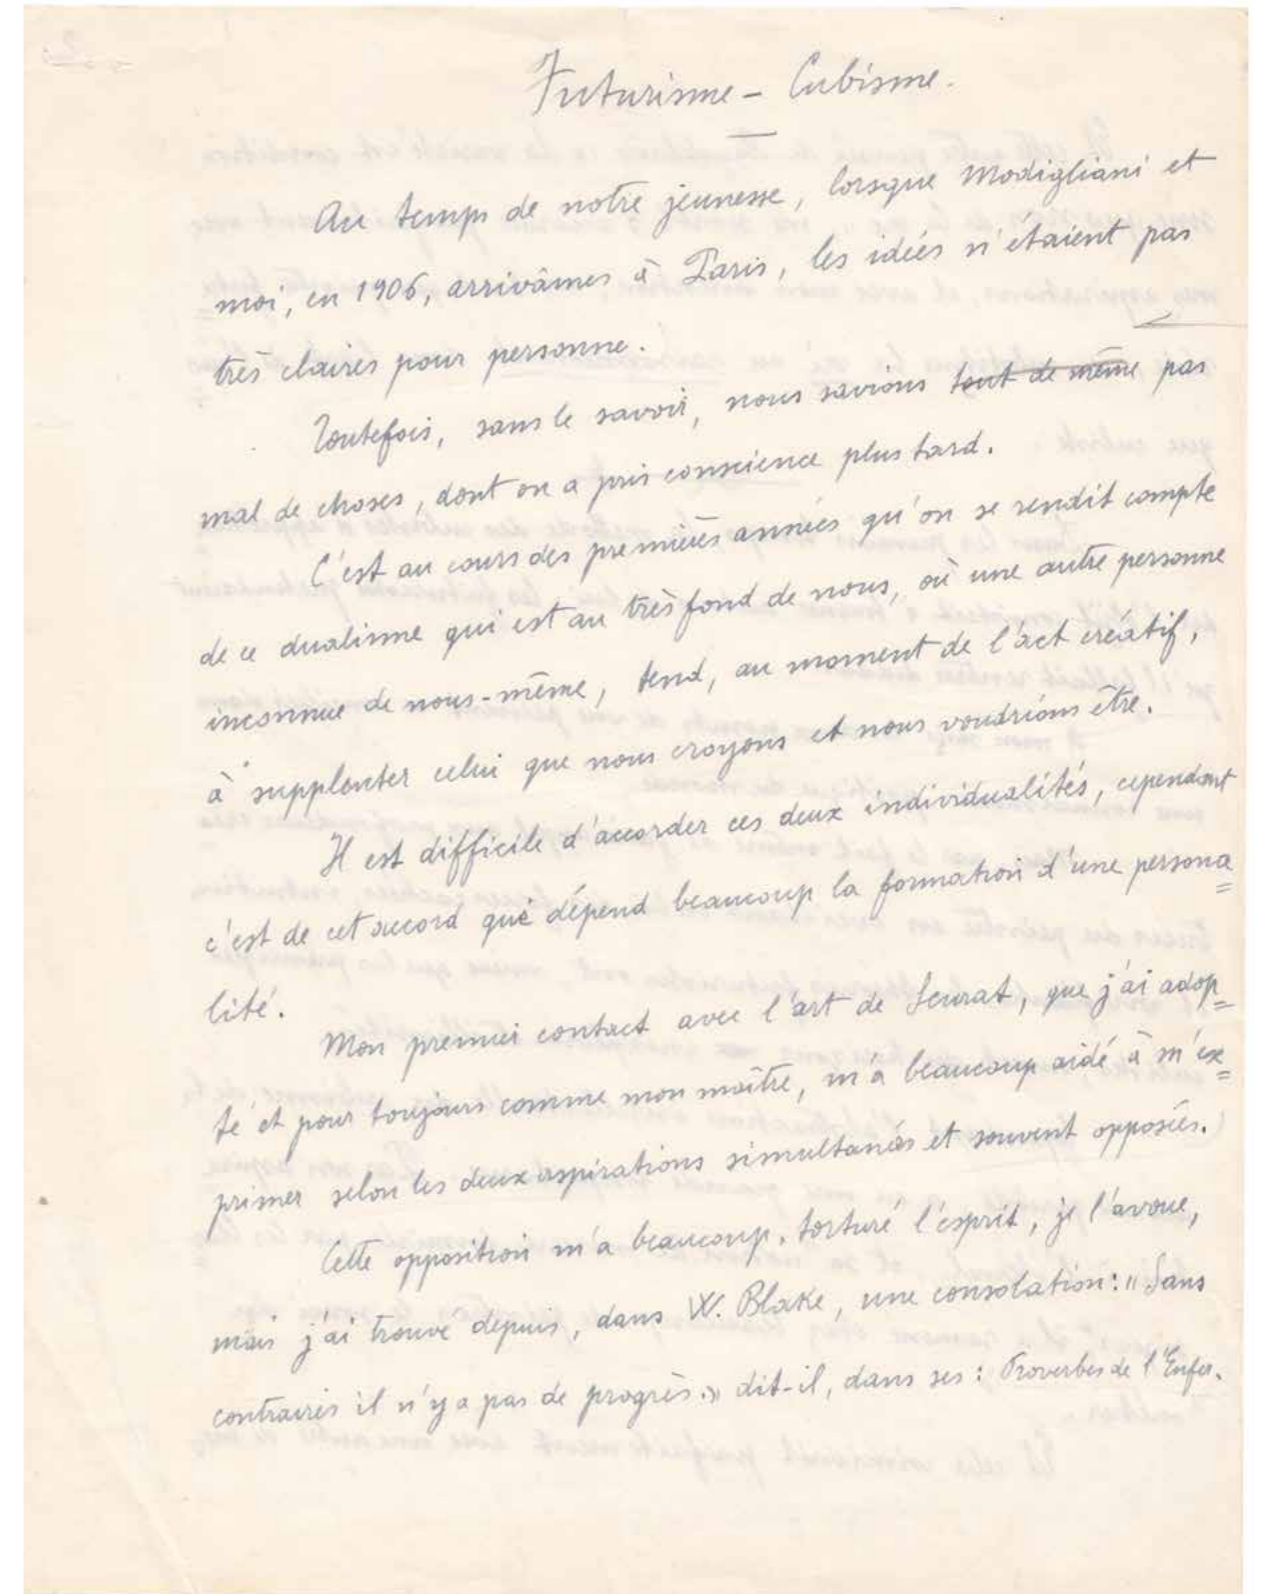 Futurisme - Cubisme.
Au temps de notre jeunesse, lorsque Modigliani et
moi, en 1906, arrivâmes à Paris, les idées n'etaient pas
très claires pour personne.
Toutefois, sans le savoir, nous savions tout de même pas
mal de choses, dont on a pris conscience plus tard.
C'est au cours des premières années qu'on se rendit compte
de ce dualisme qui est au très fond de nous, où une autre personne
inconnue de nous-même, tend, au moment de l'act créatif,
à supplenter celui que nous croyons et nous voudrions être.
Il est difficile d'accorder ces deux individualités, cependant
c'est de cet accord que dépend beaucoup la formation d'une persona=
lité.
Mon premier contact avec l'art de Seurat, que j'ai adop=
té et pour toujours comme mon maître, m'a beaucoup aidé à m'ex=
primer selon les deux aspirations simultanés et souvent opposées.
Cette opposition m'a beaucoup torturé l'esprit, je l'avoue,
mais j'ai trouvé depuis, dans W. Blake, une consolation: "Sans
contraires il n'y a pas de progrès.» dit-il, dans ses: Proverbes de l'Enfer.